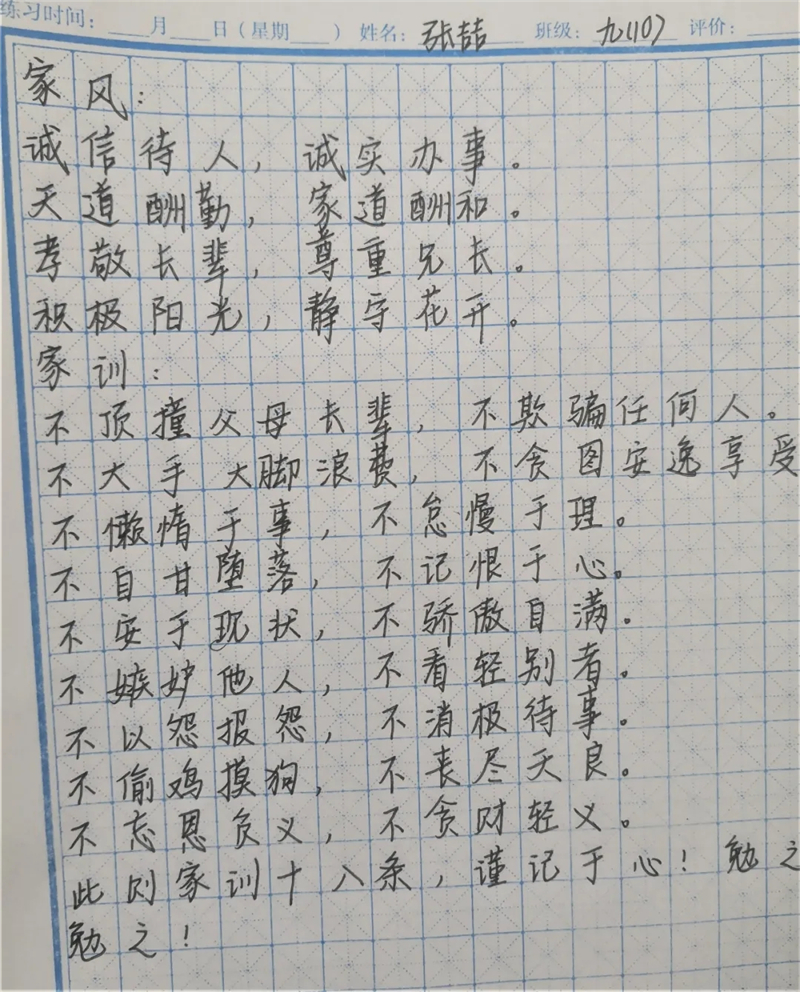 练习时间：____月____日（星期____）姓名：张喆 班级：九(10) 评价：
家风：
诚信待人，诚实办事。
天道酬勤，家道酬和。
孝敬长辈，尊重兄长。
积极阳光，静守花开。
家训：
不顶撞父母长辈，不欺骗任何人。
不大手大脚浪费，不贪图安逸享受
不懒惰于事，不怠慢于理。
不自甘堕落，不记恨于心。
不安于现状，不骄傲自满。
不嫉妒他人，不看轻别者。
不以怨报怨，不消极待事。
不偷鸡摸狗，不丧尽天良。
不忘恩负义，不贪财轻义。
此则家训十八条，谨记于心！勉之
勉之！